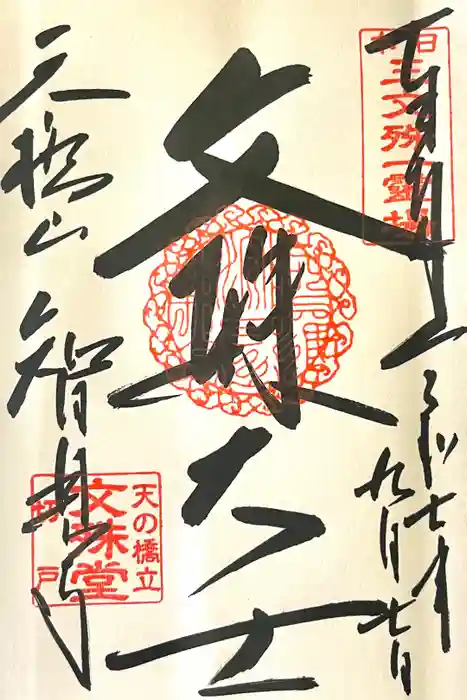 日本
三文殊一靈場
奉拝
令和七年
九月七日
文殊大士
天橋山 智恩寺
天の橋立
文殊堂
切戸